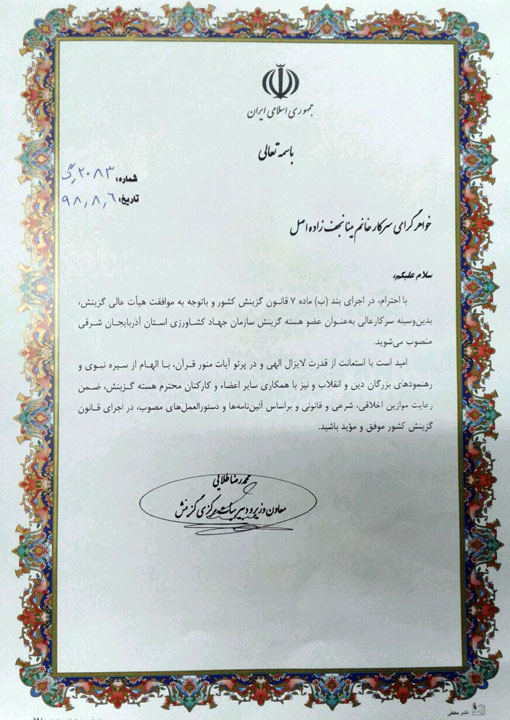 جمهوری اسلامی ایران
باسمه تعالی
شماره: ۲۰۸۳/گ
تاریخ: ۹۸/۸/۶
خواهر گرامی سرکار خانم مینا نجف زاده اصل
سلام علیکم،
با احترام، در اجرای بند (ب) ماده ۷ قانون گزینش کشور و باتوجه به موافقت هیأت عالی گزینش،
بدین‌وسیله سرکارعالی به‌عنوان عضو هسته گزینش سازمان جهاد کشاورزی استان آذربایجان شرقی
منصوب می‌شوید.
امید است با استعانت از قدرت لایزال الهی و در پرتو آیات منور قرآن، با الهام از سیره نبوی و
رهنمودهای بزرگان دین و انقلاب و نیز با همکاری سایر اعضاء و کارکنان محترم هسته گزینش، ضمن
رعایت موازین اخلاقی، شرعی و قانونی و براساس آئین‌نامه‌ها و دستورالعمل‌های مصوب، در اجرای قانون
گزینش کشور موفق و مؤید باشید.
محمدرضا طلایی
معاون وزیر و دبیر هیأت مرکزی گزینش